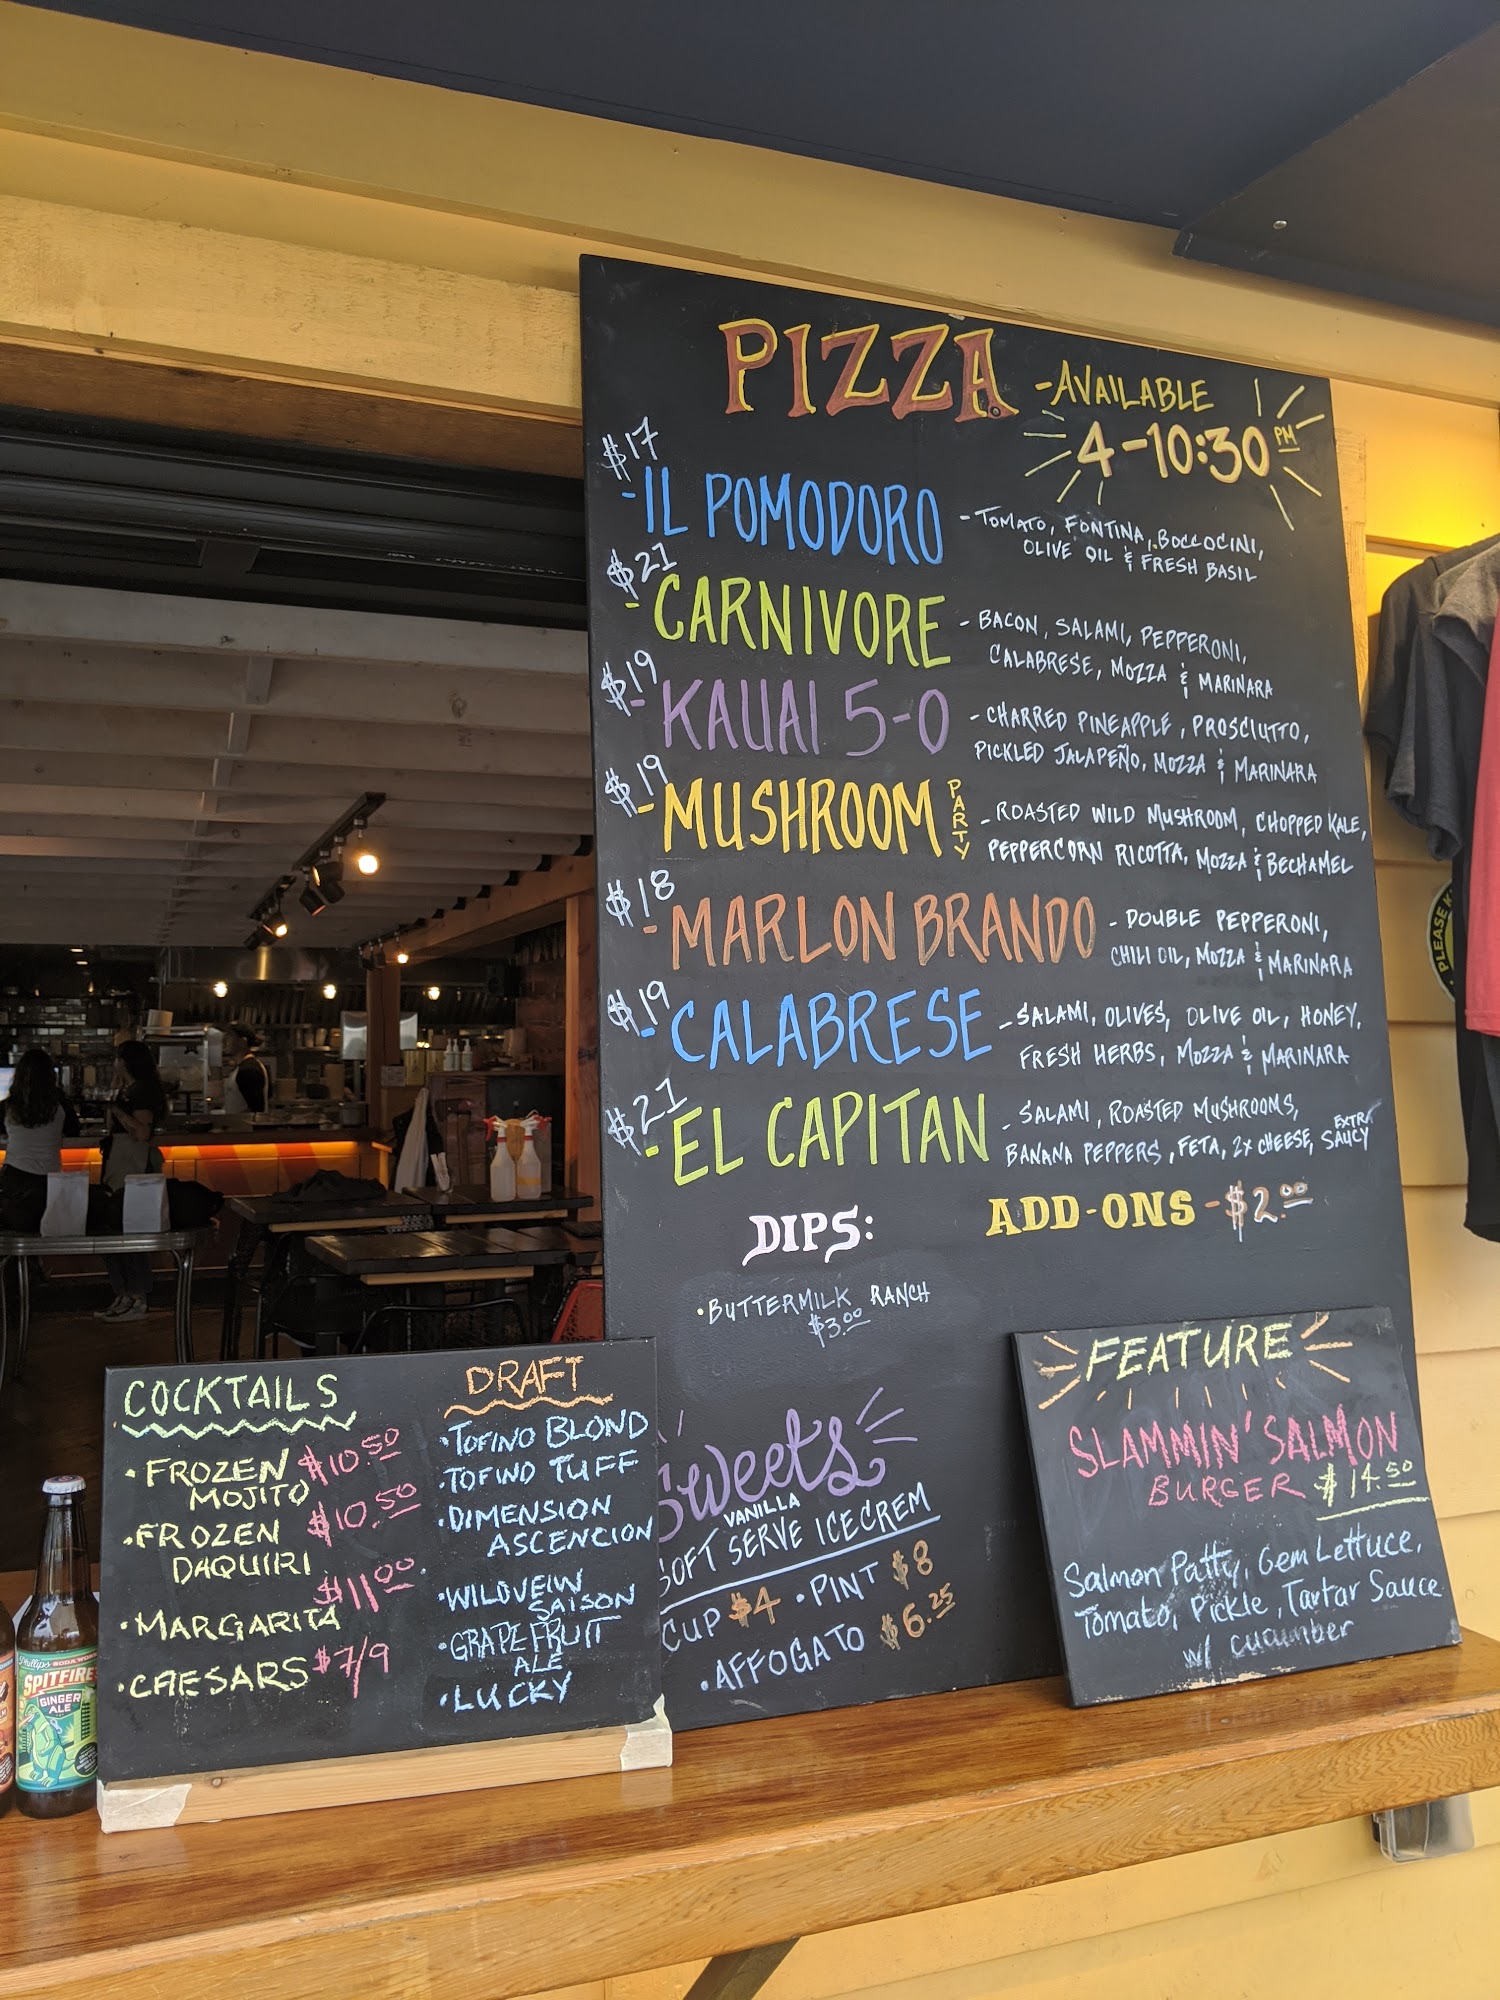 PIZZA
-AVAILABLE
4-10:30 PM
$17
-IL POMODORO
-TOMATO, FONTINA, BOCCOCINI,
OLIVE OIL & FRESH BASIL
$21
-CARNIVORE
- BACON, SALAMI, PEPPERONI,
CALABRESE, MOZZA & MARINARA
$19
-KAUAI 5-0
- CHARRED PINEAPPLE, PROSCIUTTO,
PICKLED JALAPEÑO, MOZZA & MARINARA
$19
-MUSHROOM PARTY
- ROASTED WILD MUSHROOM, CHOPPED KALE,
PEPPERCORN RICOTTA, MOZZA & BECHAMEL
$18
-MARLON BRANDO
- DOUBLE PEPPERONI,
CHILI OIL, MOZZA & MARINARA
$19
-CALABRESE
-SALAMI, OLIVES, OLIVE OIL, HONEY,
FRESH HERBS, MOZZA & MARINARA
$21
-EL CAPITAN
- SALAMI, ROASTED MUSHROOMS,
BANANA PEPPERS, FETA, 2x CHEESE, EXTRA SAUCY
DIPS:
•BUTTERMILK RANCH
$3.00
ADD-ONS -$2.00
Sweets
VANILLA
SOFT SERVE ICECREM
CUP $4 • PINT $8
•AFFOGATO $6.25
COCKTAILS
•FROZEN MOJITO $10.50
•FROZEN DAQUIRI $10.50
•MARGARITA $11.00
•CAESARS $7/9
DRAFT
•TOFINO BLOND
•TOFINO TUFF
•DIMENSION
ASCENCION
•WILDVEIW
SAISON
•GRAPEFRUIT
ALE
•LUCKY
FEATURE
SLAMMIN' SALMON
BURGER $14.50
Salmon Patty, Gem Lettuce,
Tomato, Pickle, Tartar Sauce
w/ cucumber
Phillips SODA WORKS
SPITFIRE
GINGER
ALE
PLEASE